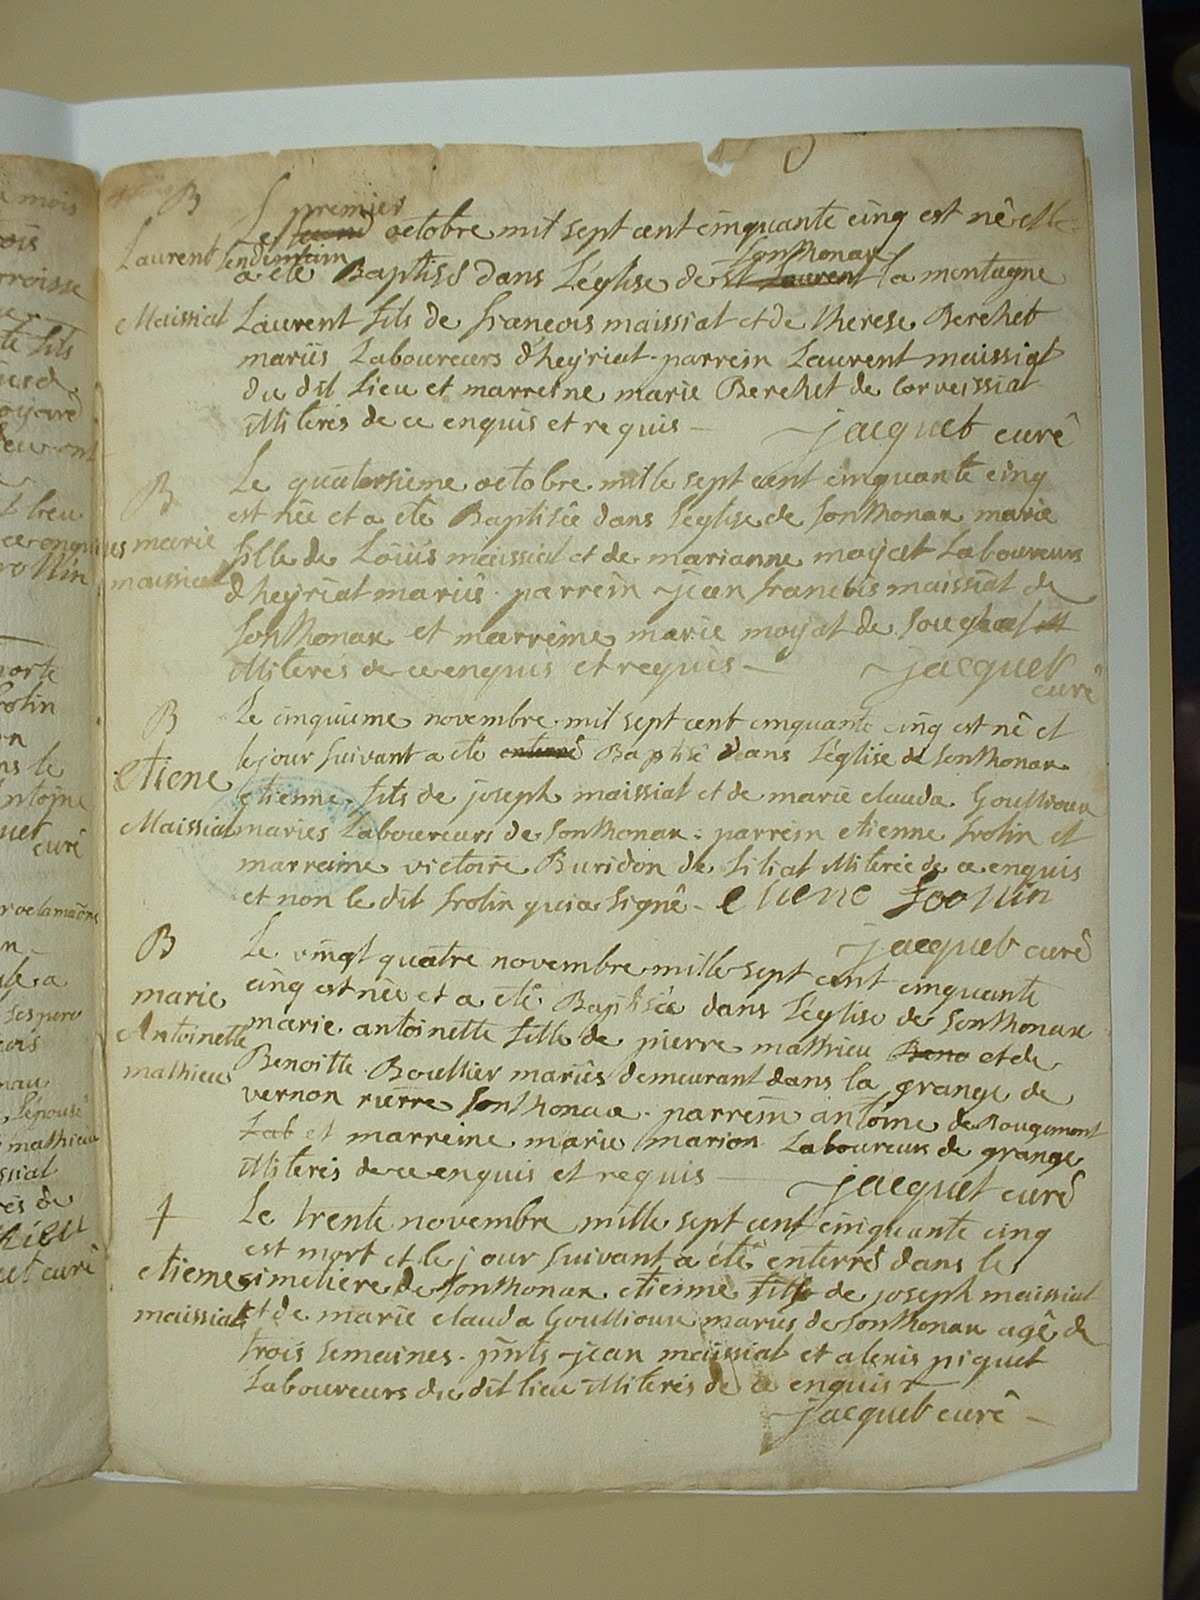 B
Laurent
Maissiat
premier
Le second octobre mil sept cent cinquante cinq est nê et le
lendemain Sonthonax
a eté Baptisé dans L'église de st Laurent la montagne
Laurent fils de francois maissiat et de therese Berchet
mariés Laboureurs d'heyriat parrein Laurent maissiat
du dit lieu et marreine marie Berchet de Corveissiat
illiterés de ce enquis et requis
jacquet curê
B
marie
maissiat
Le quatorsieme octobre mille sept cent cinquante cinq
est née et a eté Baptisée dans l'eglise de Sonthonax marie
fille de Loüis maissiat et de marianne moyat Laboureurs
d'heyriat mariés parrein jean francois maissiat de
Sonthonax et marreine marie moyat de
illiterés de ce enquis et requis
jacquet
curê
B
etiene
Maissiat
Le cinquieme novembre mil sept cent cinquante cinq est nê et
le jour suivant a eté enterré Baptisé dans l'église de Sonthonax
etienne fils de joseph maissiat et de marie clauda Goullioux
mariés Laboureurs de Sonthonax parrein etienne frolin et
marraine victoire Buridon de Siliat illiterée de ce enquis
et non le dit frolin qui a signê
jacquet curê
B
marie
Antoinette
mathieu
Le vingt quatre novembre mille sept cent cinquante
cinq est née et a eté Baptisée dans l'église de Sonthonax
marie antoinette fille de pierre mathieu Beno et de
Benoitte Boullier mariés demeurant dans la grange de
vernon rierre Sonthonax parrein antoine de Rougemont
Lab et marreine marie marion Laboureurs de grange
illiterés de ce enquis et requis
jacquet curé
†
etiene
maissiat
Le trente novembre mille sept cent cinquante cinq
est mort et le jour suivant a eté enterré dans le
simetiere de Sonthonax etienne fils de joseph maissiat
et de marie clauda Goullioux mariés de Sonthonax agê de
trois semaines pnts jean maissiat et alexis piquet
Laboureurs du dit lieu illiterés de ce enquis
jacquet curê